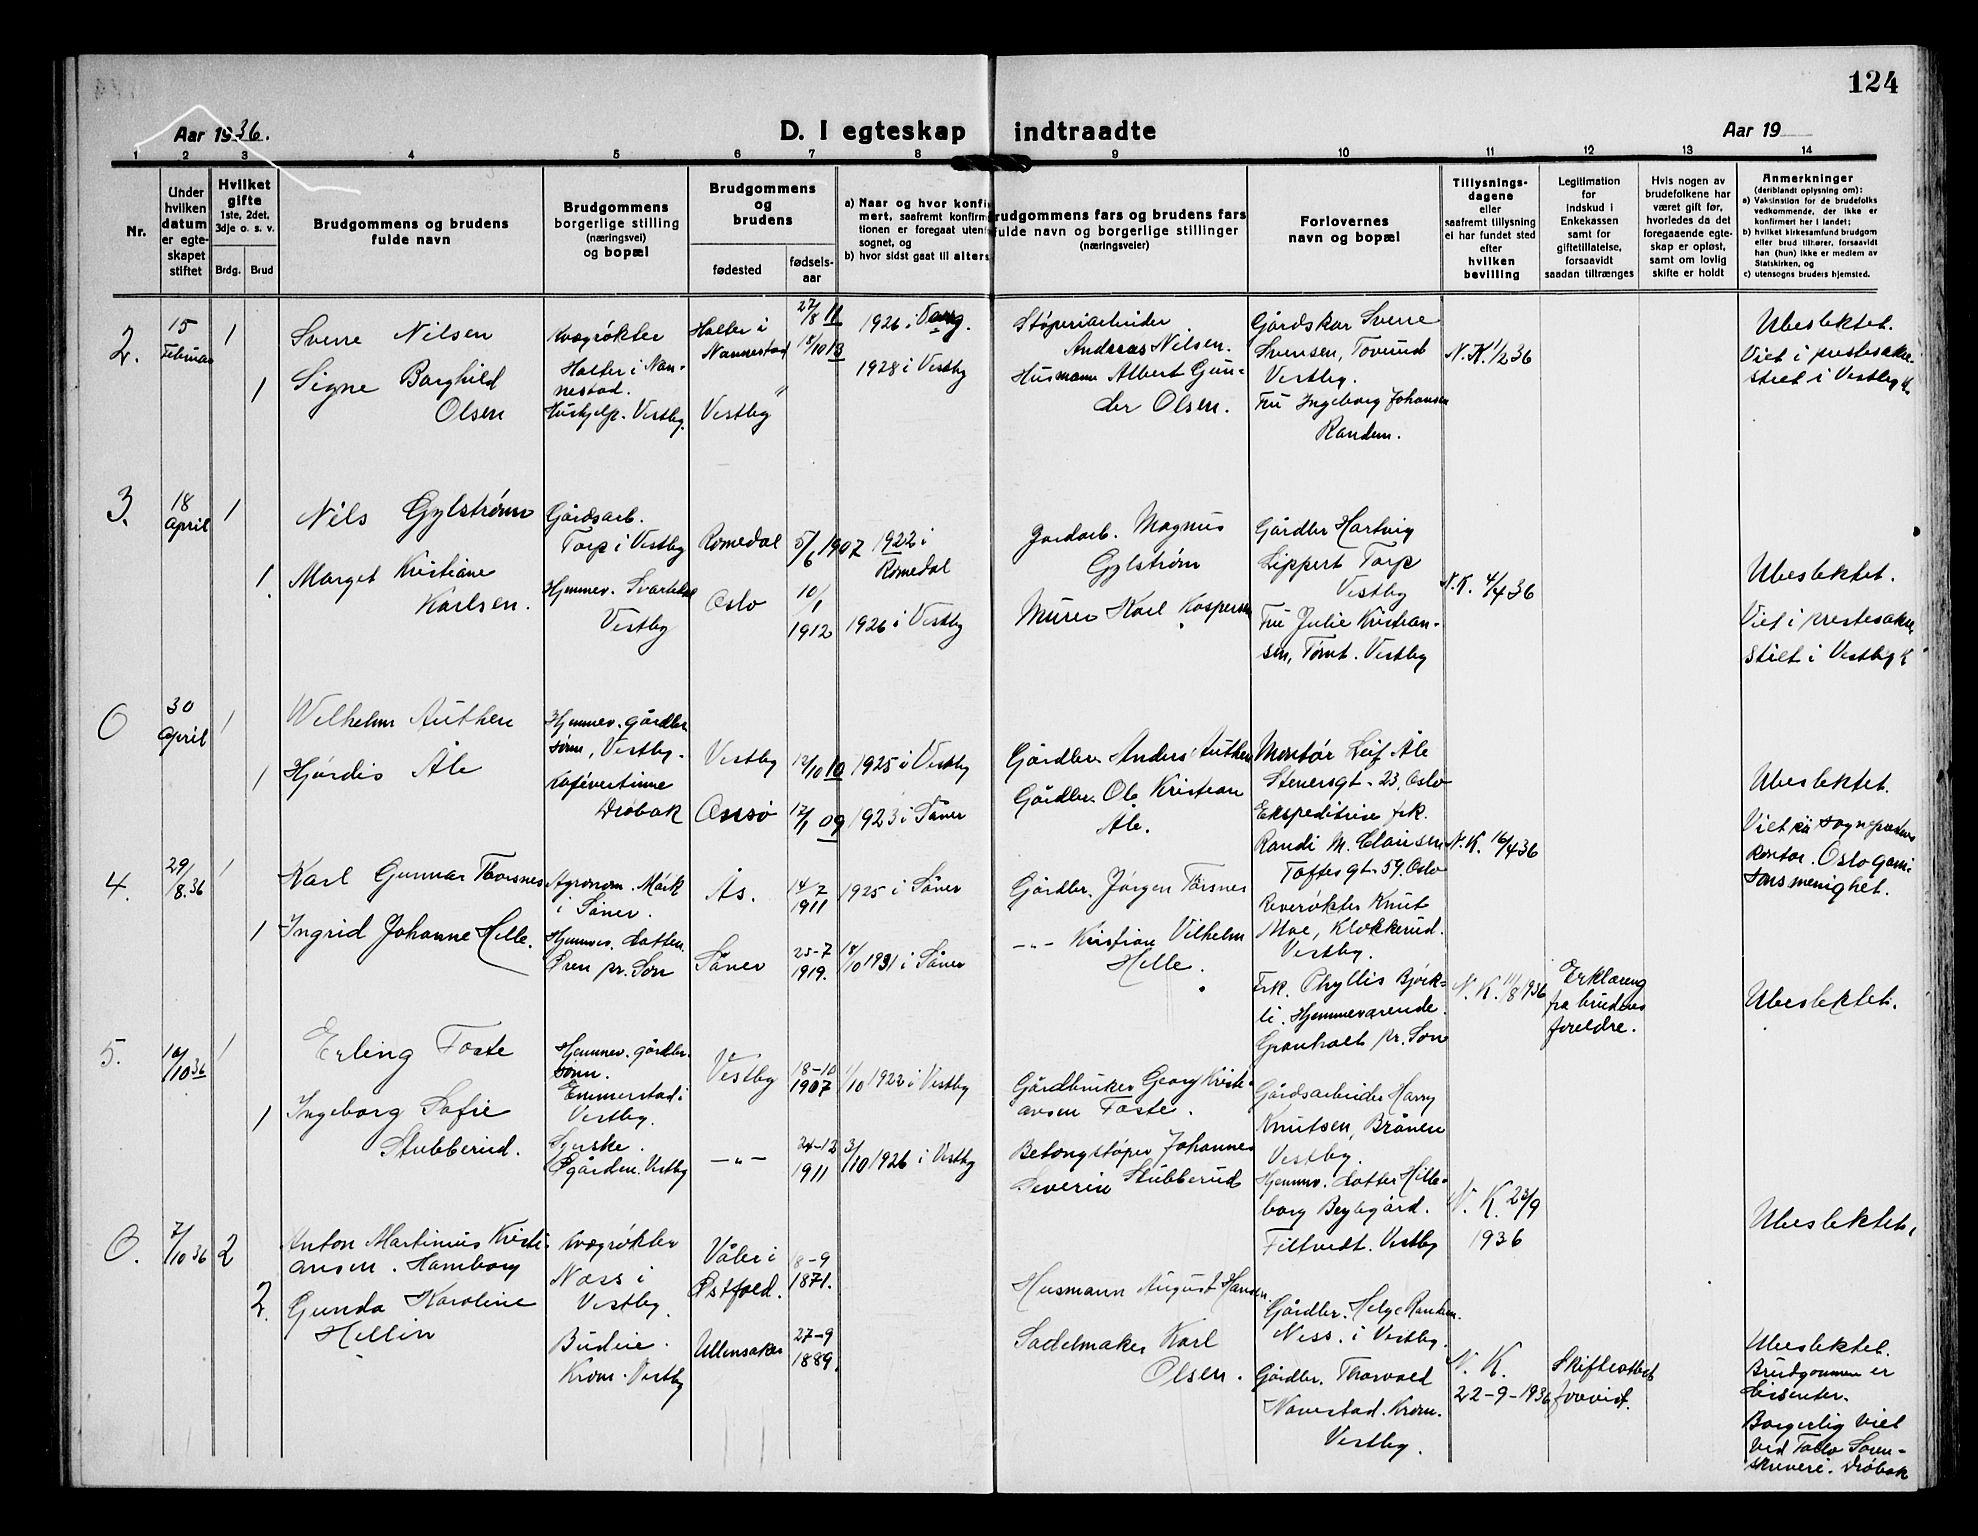 124
Aar 1936.
D. I egteskap indtraadte
Aar 19
1 2 3 4 5 6 7 8 9 10 11 12 13 14
Nr.
Under
hvilken
datum
er egte-
skapet
stiftet
Hvilket
gifte
1ste, 2det,
3dje o. s. v.
Brdg. Brud
Brudgommens og brudens
fulde navn
Brudgommens
borgerlige stilling
(næringsvei)
og bopæl
Brudgommens
og
brudens
fødested
fødsels-
aar
a) Naar og hvor konfir
mert, saafremt konfirm
tionen er foregaat uten
sognet, og
b) hvor sidst gaat til alters
rudgommens fars og brudens fars
fulde navn og borgerlige stillinger
(næringsveier)
Forlovernes
navn og bopæl
Tillysnings-
dagene
eller
saafremt tillysning
ei har fundet sted
efter
hvilken
bevilling
Legitimation
for
indskud i
Enkekassen
samt for
giftetillatelse,
forsaavidt
saadan tiltrænges
Hvis nogen av
brudefolkene har
været gift før,
hvorledes da det
foregaaende egte-
skap er opløst,
samt om lovlig
skifte er holdt
Anmerkninger
(deriblandt oplysning om):
a) Vaksination for de brudefolks
vedkommende, der ikke er
konfirmert her i landet;
b) hvilket kirkesamfund brudgom
eller brud tilhører, forsaavidt
han (hun) ikke er medlem av
Statskirken, og
c) utensogns bruders hjemsted.
2.
15
Februar
1
1
Sverre Nilsen
Signe Borghild
Olsen
Kvægrøkter
Holter i Nan-
nestad.
Hushjelp. Vestby.
Holter i
Nannestad
Vestby
27/8 11
18/10 13
"
1926 i
1928 i Vestby
Støperiarbeider
Andreas Nilsen.
Husmann Albert Gun-
der Olsen.
Gårdskar Sverre
Svensen, Tovrud
Vestby.
Fru Ingeborg Johansen
Randem.
N.K. 1/2 36
Ubeslektet.
Viet i prestesakri-
stiet i Vestby K
3.
18
April
1
1.
Nils Gylstrøm
Marget Kristiane
Karlsen.
Gårdsarb.
Torp i Vestby
Hjemmev.
Vestby
Romedal
Oslo
5/6 1907
10/1
1912
1922 i
Romedal
1926 i Vestby
Jordarb. Magnus
Gylstrøm
Murer Karl Kaspersen
Gårdbr Hartvig
Lippert Torp
Vestby
Fru Julie Kristian-
sen, Tømt. Vestby
N.K. 4/4 36
Ubeslektet.
Viet i prestesakri
stiet i Vestby K
0
30
April
1
1
Wilhelm Authen
Hjördis Åle
Hjemmev. gårdbr
sønn, Vestby.
Kafévertinne
Drøbak
Vestby
12/10 10
17/1 09
1925 i Vestby
1923 i Såner
Gårdbr. Anders Authen
Gårdbr. Ole Kristian
Åle.
Montør Leif Åle
Stenersgt. 23, Oslo
Ekspeditrise frk.
Randi M. Clausen
Toftesgt. 59. Oslo
N.K. 16/4 36
Ubeslektet.
Viet på sogneprestens
kontor. Oslo garni-
sonsmenighet.
4.
29/8.36
1
1
Karl Gunnar Thorsnes
Ingrid Johanne Hille.
Agronom. Mørk
i Såner.
Hjemmev. datter.
Øren pr. Son
Ås.
Såner
14/2
1911
25-7
1919.
1925 i Såner
/10 1931 i Såner
Gårdbr. Jørgen Torsnes
-"- Kristian Vilhelm
Hille.
Reverøkter Knut
Moe, Klokkerud.
Vestby.
Frk. Phyllis Bjørk-
li. Hjemmeværende.
Granholt pr. Son
N.K. 11/8 1936
Erklæring
fra brudens
foreldre.
Ubeslektet.
5.
10/10 36
1
1
Erling Foste
Ingeborg Sofie
Stubberud.
Hjemmev. gårdbr.
sønn.
Emmerstad i
Vestby.
Syerske.
Øgården. Vestby
Vestby
-"-
18-10
1907
24-12
1911
1/10 1922 i Vestby
3/10 1926 i Vestby
Gårdbruker Georg Kristi-
ansen Foste.
Betongstøper Johannes
Severin Stubberud
Gårdsarbeider Harry
Knutsen, Brånen
Vestby.
Hjemmv. datter Hille-
borg Beylegård.
Filtvedt. Vestby
N. K. 23/9
1936
Ubeslektet.
0.
7/10 36
2
2.
Anton Martinius Kristi-
ansen. Hamborg
Gunda Karoline
Hillin
Kvægrøkter
Næss i
Vestby.
Budeie.
Krom. Vestby
Våler i
Østfold.
Ullensaker
8-9
1871.
27-9
1889.
Husmann August Hansen.
Sadelmaker Karl
Olsen.
Gårdbr. Helge Ramken.
Ness. i Vestby.
Gårdbr. Thorvald
Navestad. Krom.
Vestby.
N. K.
22-9-1936
Skifteattest
forevist.
Ubeslektet.
Brudgommen er
dissenter.
Borgerlig viet
ved Follo Soren-
skriveri. Drøbak